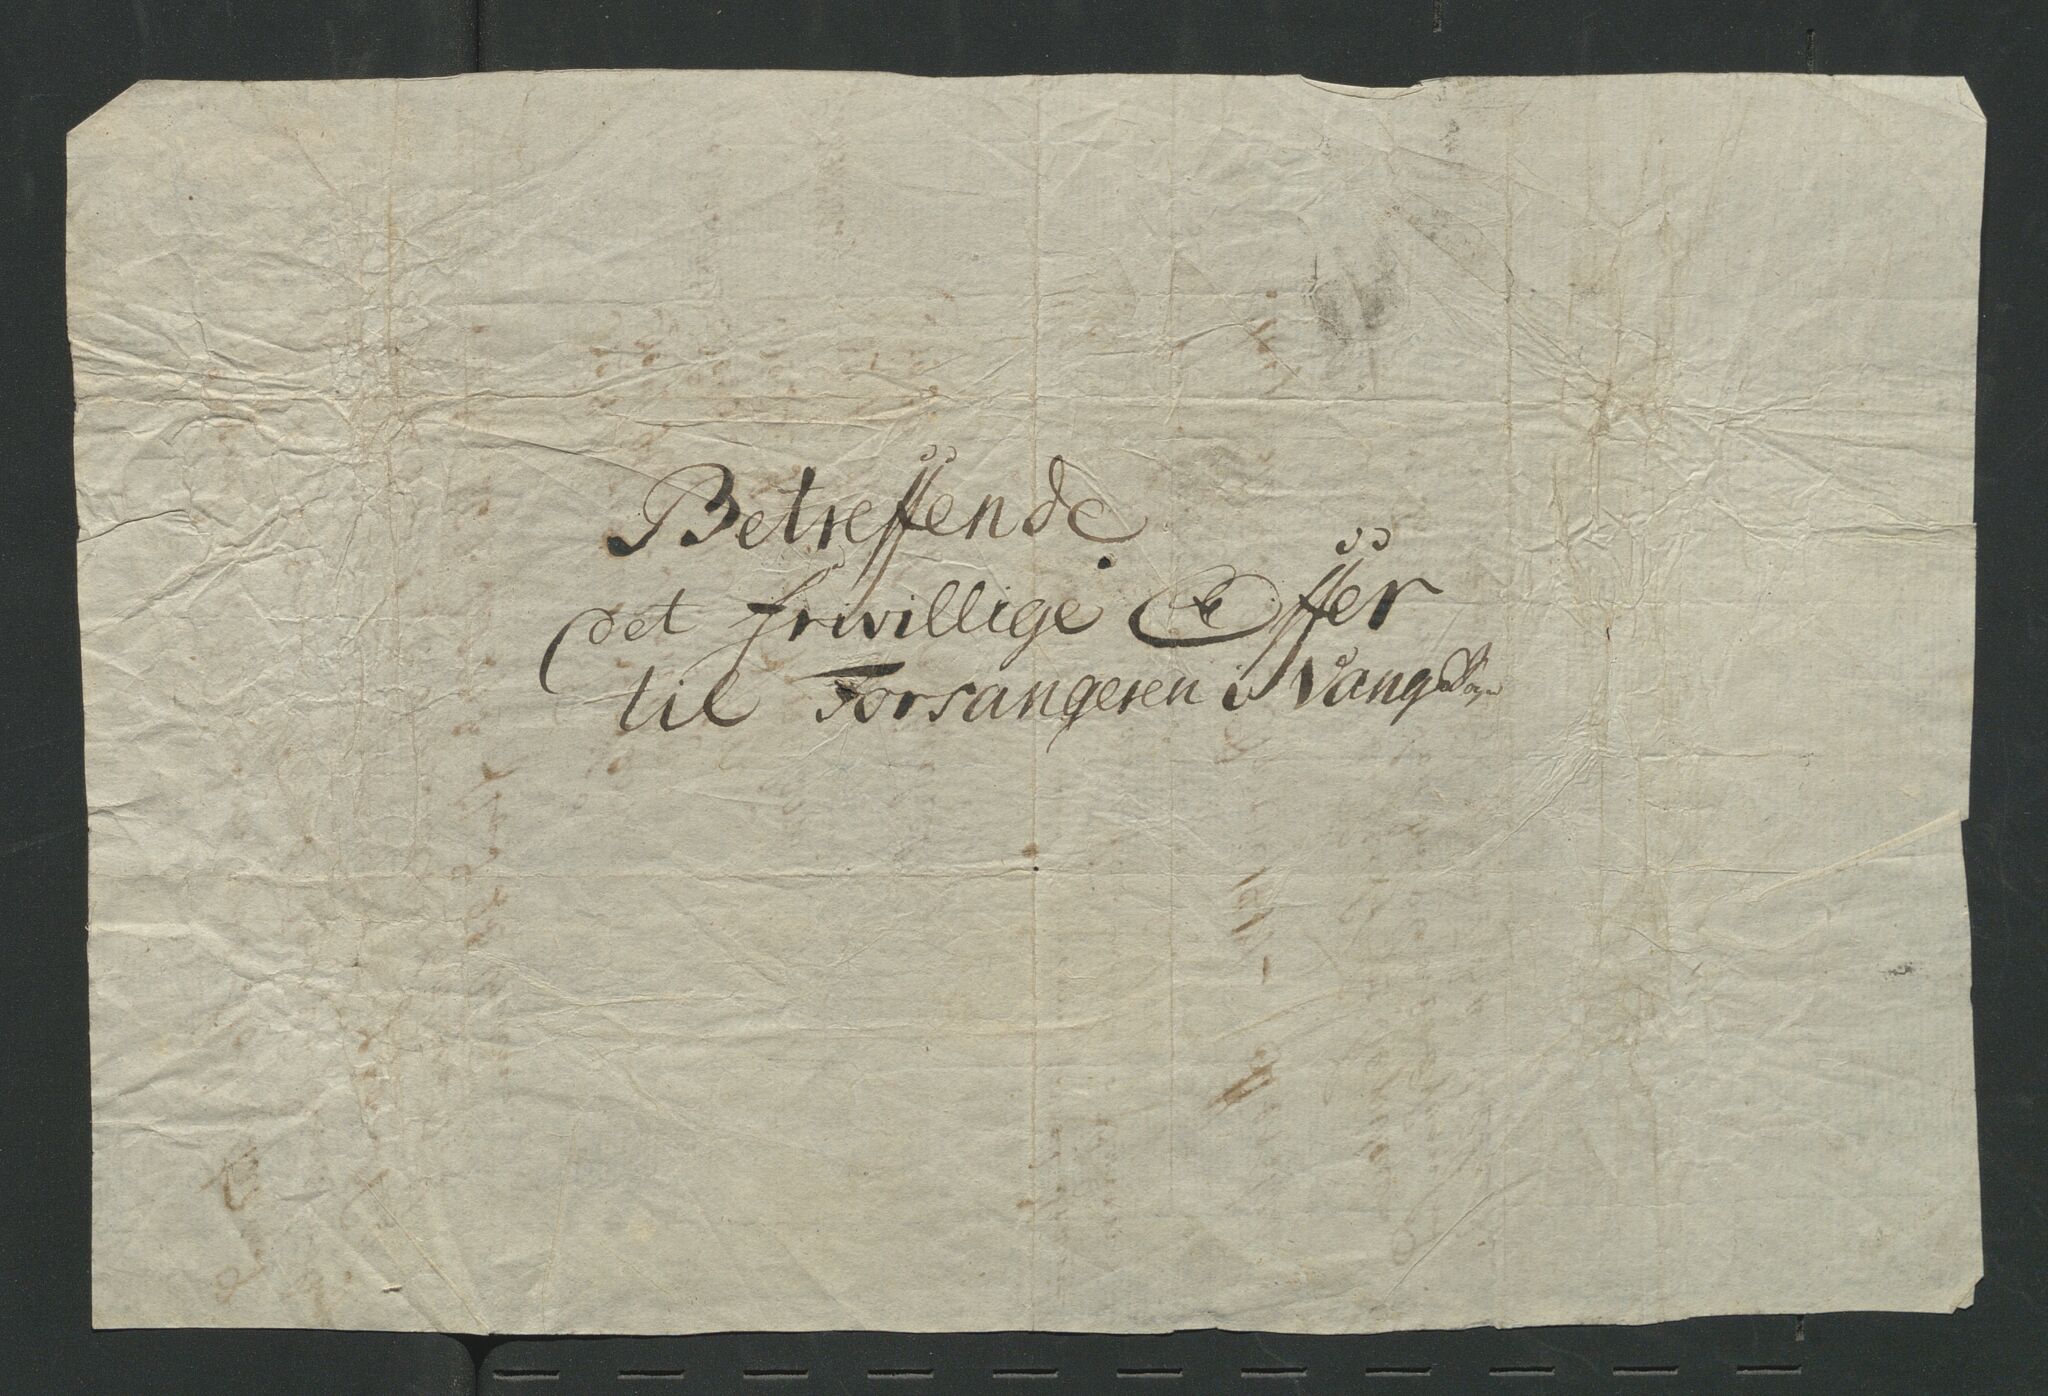 Betreffende
det frivillige Offer
til Forsangeren i Vang